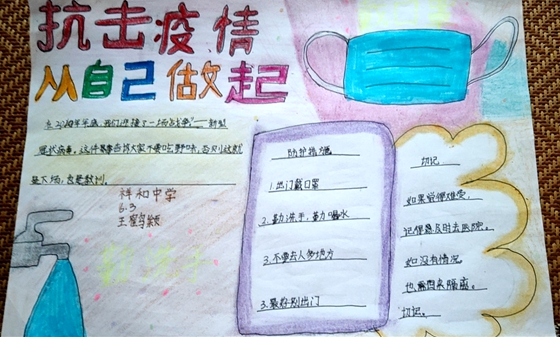 抗击疫情
从自己做起
在2020年年底,我们迎接了一场战争?——新型
冠状病毒。这件事警告诉大家不要吃野味,否则这就
是下场,血是教训。
祥和中学
6.3
王
防护措施
1.出门戴口罩
2.勤洗手,勤喝水
3.不要去人多地方
3.最好别出门
切记
如果觉得难受,
记得是及时去医院。
如没有情况
也
切记。
勤洗手